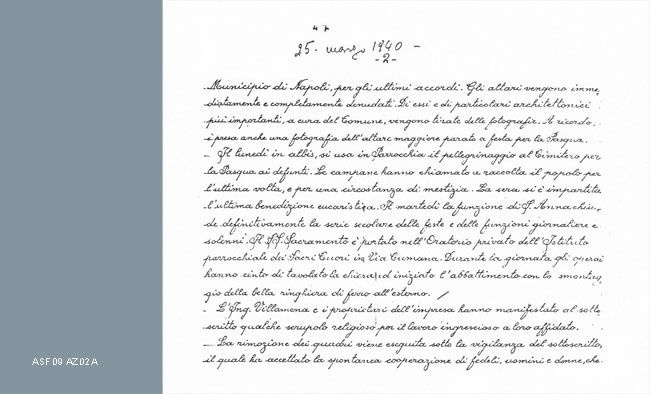 25. marzo 1940 -
-2-
Municipio di Napoli, per gli ultimi accordi. Gli altari vengono imme-
diatamente e completamente denudati. Di essi e di particolari architettonici
più importanti, a cura del Comune, vengono tirate delle fotografie. A ricordo,
è presa anche una fotografia dell'altare maggiore parato a festa per la Pasqua.
- Il lunedì in albis, si usa in Parrocchia il pellegrinaggio al Cimitero per
la Pasqua ai defunti. Le campane hanno chiamato a raccolta il popolo per
l'ultima volta, e per una circostanza di mestizia. La sera si è impartita
l'ultima benedizione eucaristica. Il martedì la funzione di S. Anna chiu-
de definitivamente la serie secolare delle feste e delle funzioni giornaliere e
solenni. Il SS. Sacramento è portato nell'Oratorio privato dell'Istituto
parrocchiale dei Sacri Cuori in Via Cumana. Durante la giornata gli operai
hanno cinto di tavolato la chiesa, ed iniziato l'abbattimento con lo smontag-
gio della bella ringhiera di ferro all'esterno. /
- L'Ing. Villamena e i proprietari dell'impresa hanno manifestato al sotto-
scritto qualche scrupolo religioso per il lavoro increscioso a loro affidato.
- La rimozione dei quadri viene eseguita sotto la vigilanza del sottoscritto,
il quale ha accettato la spontanea cooperazione di fedeli, uomini e donne, che
ASF 09 AZ02A